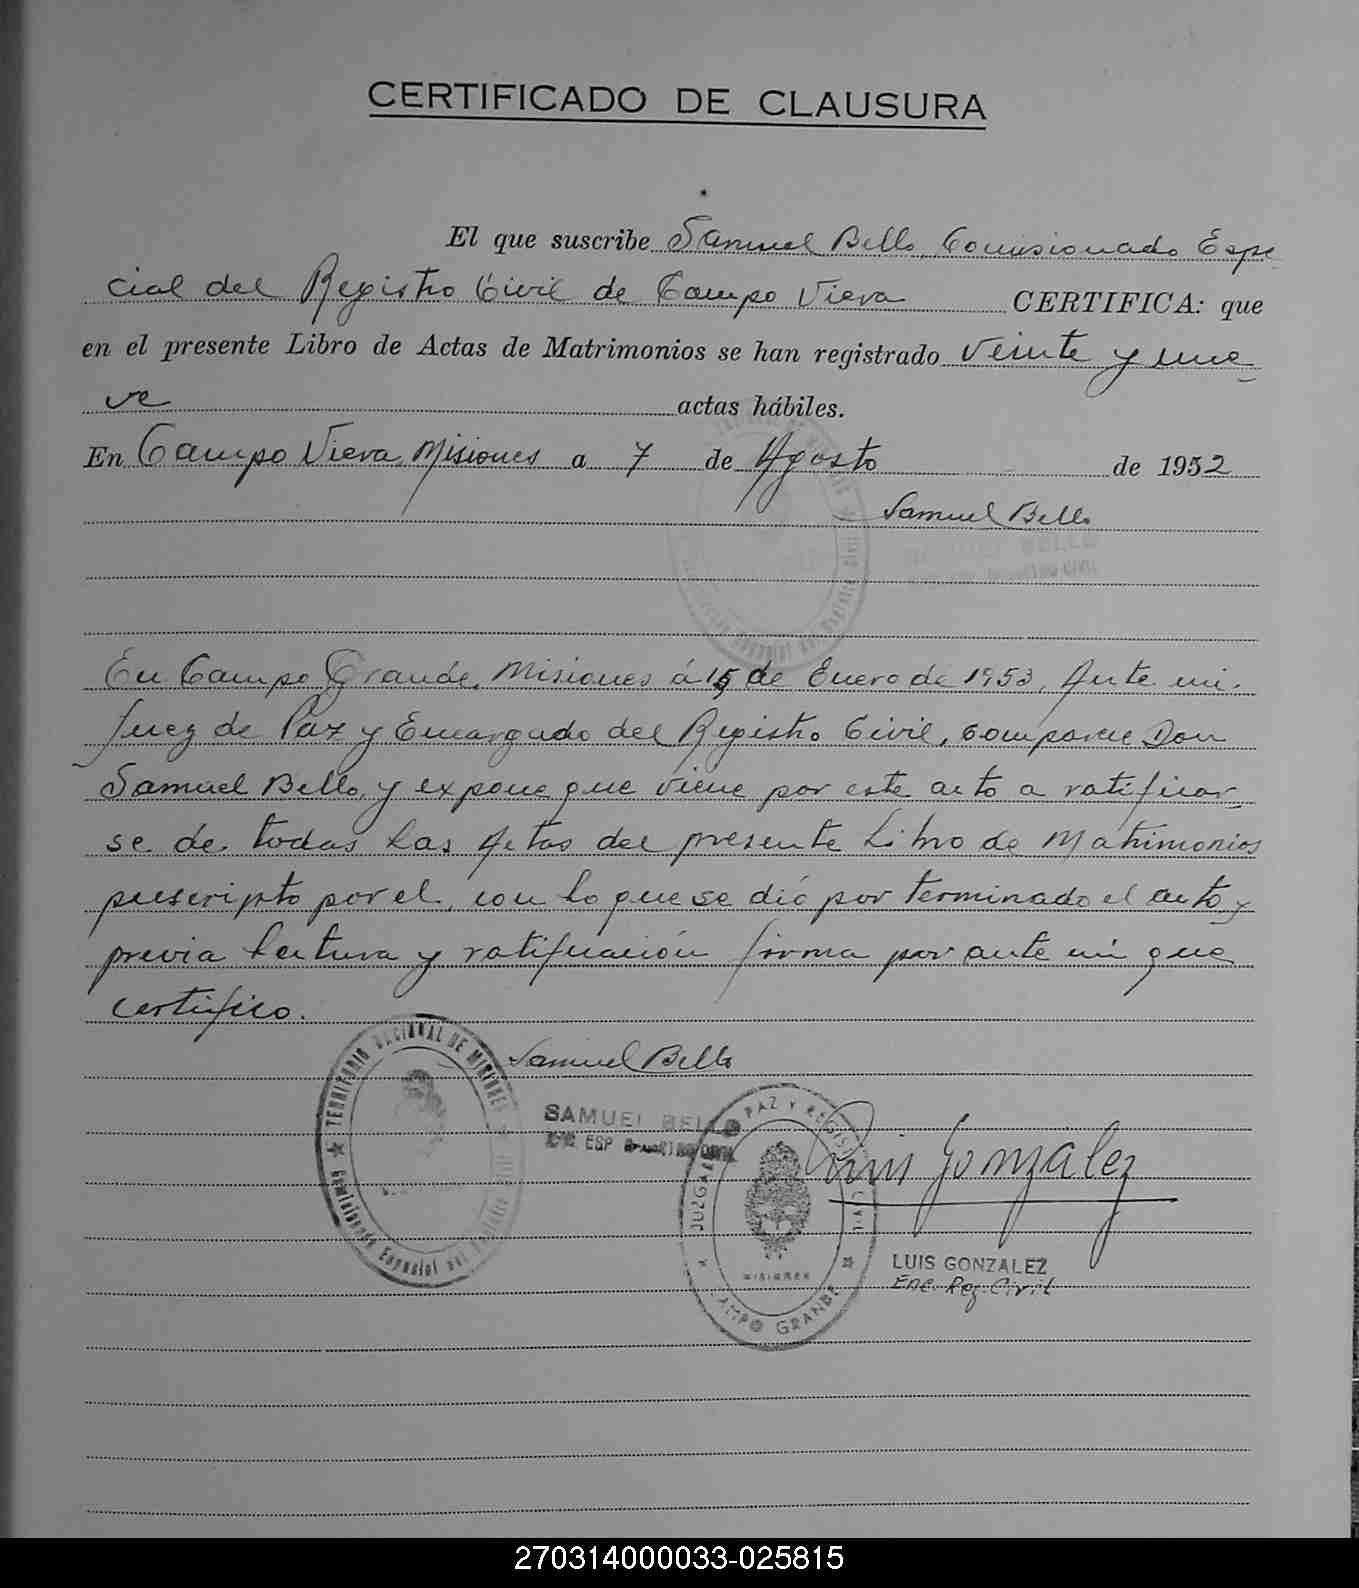 CERTIFICADO DE CLAUSURA
El que suscribe Samuel Bello, Comisionado Espe
cial del Registro Civil de Campo Viera CERTIFICA: que
en el presente Libro de Actas de Matrimonios se han registrado Veinte y nue-
ve actas hábiles.
En Campo Viera, Misiones a 7 de Agosto de 1952
Samuel Bello
SAMUEL BELLO
En Campo Grande, Misiones á 15 de Enero de 1953, Ante mi.
Juez de Paz y Encargado del Registro Civil, comparece Don
Samuel Bello, y expone que viene por este acto a ratificar-
se de todas las Actas del presente Libro de Matrimonios
prescripto por el, con lo que se dió por terminado el acto y
previa lectura y ratificación firma por ante mi que
certifico.
TERRITORIO NACIONAL DE MISIONES
Comisionado Especial del Registro Civil
Samuel Bello
SAMUEL BELLO
ESP
JUZGADO PAZ Y REGISTRO CIVIL
MISIONES
CAMPO GRANDE
Luis González
LUIS GONZALEZ
Enc. Reg. Civil
270314000033-025815